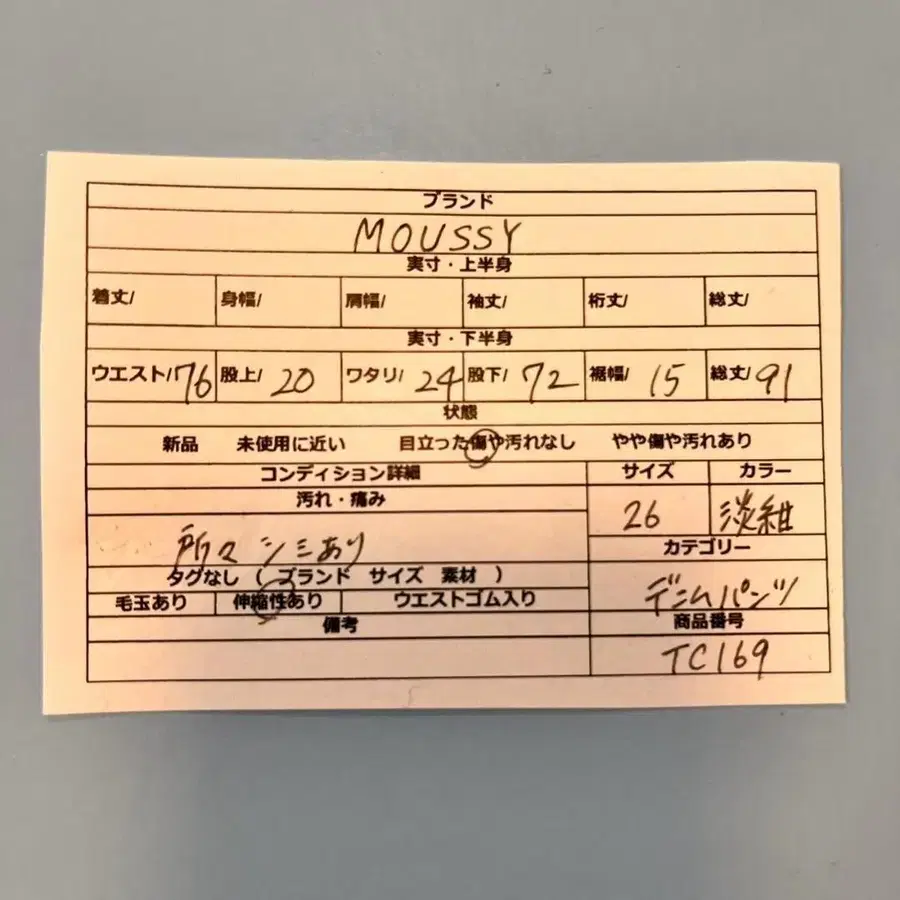 ブランド
MOUSSY
実寸・上半身
着丈/ 身幅/ 肩幅/ 袖丈/ 裄丈/ 総丈/
実寸・下半身
ウエスト/76 股上/20 ワタリ/24 股下/72 裾幅/15 総丈/91
状態
新品 未使用に近い 目立った傷や汚れなし やや傷や汚れあり
コンディション詳細 サイズ カラー
汚れ・痛み
26 淡紺
所々シミあり
カテゴリー
タグなし ( ブランド サイズ 素材 )
デニムパンツ
毛玉あり 伸縮性あり ウエストゴム入り
商品番号
備考
TC169